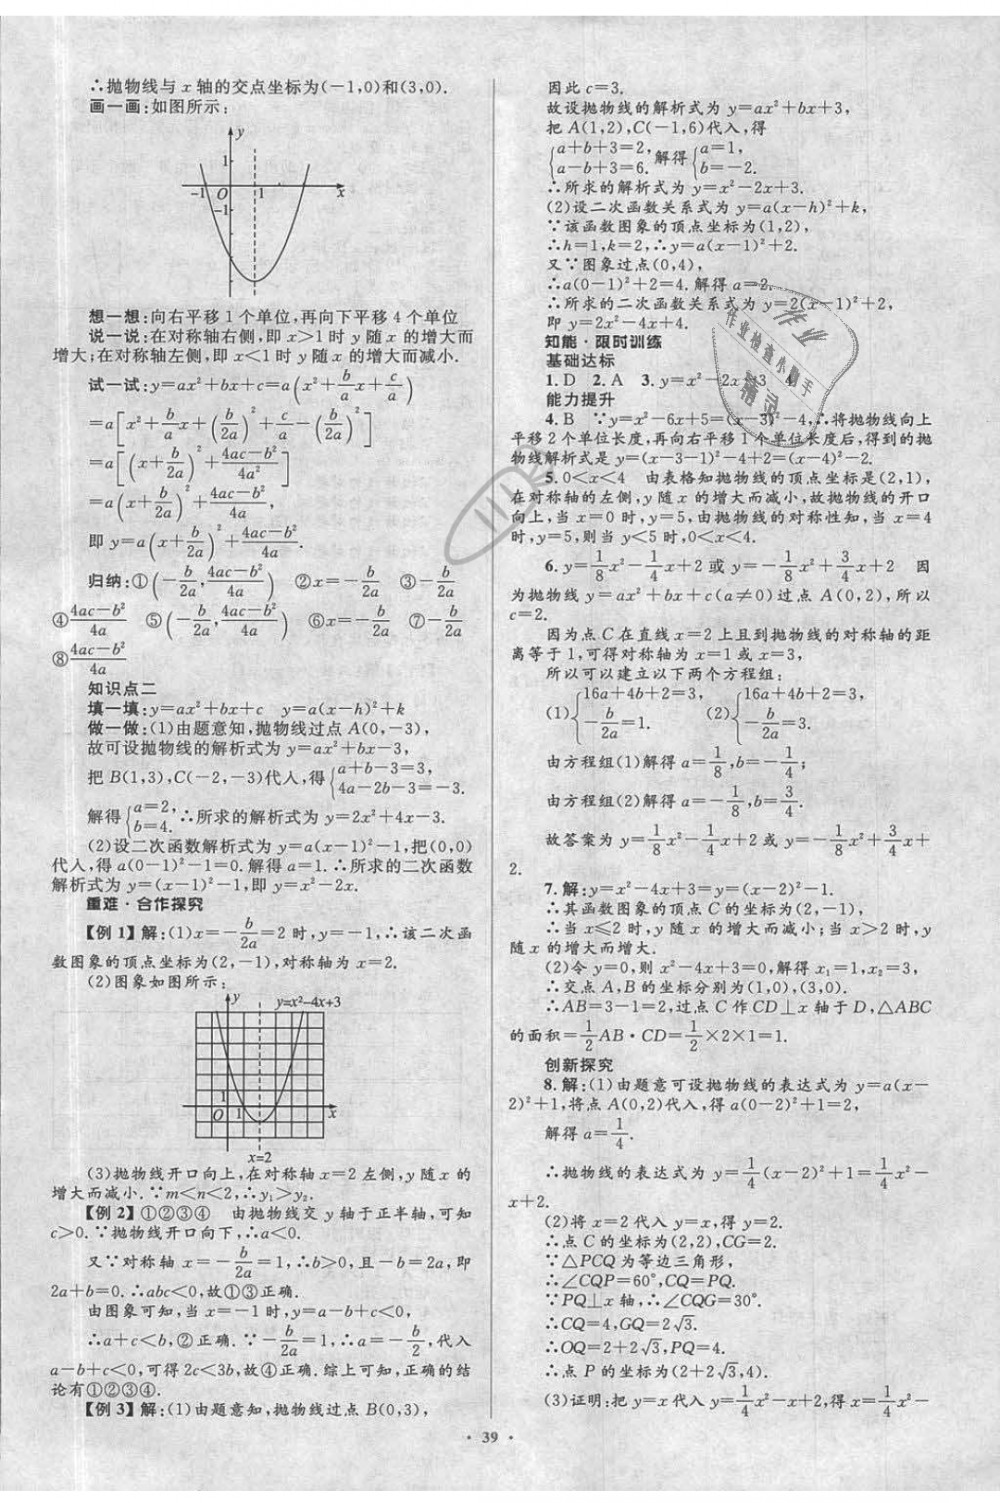 ∴抛物线与 x 轴的交点坐标为(－1,0)和(3,0).
画一画:如图所示:
y
1
－1 O 1 x
－1
想一想:向右平移 1 个单位,再向下平移 4 个单位
说一说:在对称轴右侧,即 x＞1 时 y 随 x 的增大而
增大;在对称轴左侧,即 x＜1 时 y 随 x 的增大而减小.
试一试:y＝ax²＋bx＋c＝a(x²＋b/a x＋c/a)
＝a[x²＋b/a x＋(b/2a)²＋c/a－(b/2a)²]
＝a[(x＋b/2a)²＋(4ac－b²)/4a²]
＝a(x＋b/2a)²＋(4ac－b²)/4a,
即 y＝a(x＋b/2a)²＋(4ac－b²)/4a.
归纳:①(－b/2a,(4ac－b²)/4a) ②x＝－b/2a ③－b/2a
④(4ac－b²)/4a ⑤(－b/2a,(4ac－b²)/4a) ⑥x＝－b/2a ⑦－b/2a
⑧(4ac－b²)/4a
知识点二
填一填:y＝ax²＋bx＋c y＝a(x－h)²＋k
做一做:(1)由题意知,抛物线过点 A(0,－3),
故可设抛物线的解析式为 y＝ax²＋bx－3,
把 B(1,3),C(－2,－3)代入,得{a＋b－3＝3, 4a－2b－3＝－3.
解得{a＝2, b＝4. ∴所求的解析式为 y＝2x²＋4x－3.
(2)设二次函数解析式为 y＝a(x－1)²－1,把(0,0)
代入,得 a(0－1)²－1＝0.解得 a＝1.∴所求的二次函数
解析式为 y＝(x－1)²－1,即 y＝x²－2x.
重难·合作探究
【例 1】解:(1)x＝－b/2a＝2 时,y＝－1,∴该二次函
数图象的顶点坐标为(2,－1),对称轴为 x＝2.
(2)图象如图所示:
y y=x²－4x＋3
1
O 1 x
x=2
(3)抛物线开口向上,在对称轴 x＝2 左侧,y 随 x 的
增大而减小.∵m＜n＜2,∴y₁＞y₂.
【例 2】①②③④ 由抛物线交 y 轴于正半轴,可知
c＞0.∵抛物线开口向下,∴a＜0.
又∵对称轴 x＝－b/2a＝1,∴b＞0,且 b＝－2a,即
2a＋b＝0.∴abc＜0,故①③正确.
由图象可知,当 x＝－1 时,y＝a－b＋c＜0,
∴a＋c＜b,②正确.∵－b/2a＝1,∴a＝－b/2,代入
a－b＋c＜0,可得 2c＜3b,故④正确.综上可知,正确的结
论有①②③④.
【例 3】解:(1)由题意知,抛物线过点 B(0,3),
因此 c＝3.
故设抛物线的解析式为 y＝ax²＋bx＋3,
把 A(1,2),C(－1,6)代入,得
{a＋b＋3＝2, a－b＋3＝6. 解得{a＝1, b＝－2.
∴所求的解析式为 y＝x²－2x＋3.
(2)设二次函数关系式为 y＝a(x－h)²＋k,
∵该函数图象的顶点坐标为(1,2),
∴h＝1,k＝2,∴y＝a(x－1)²＋2.
又∵图象过点(0,4),
∴a(0－1)²＋2＝4.解得 a＝2.
∴所求的二次函数关系式为 y＝2(x－1)²＋2,
即 y＝2x²－4x＋4.
知能·限时训练
基础达标
1. D 2. A 3. y＝x²－2x＋3
能力提升
4. B ∵y＝x²－6x＋5＝(x－3)²－4,∴将抛物线向上
平移 2 个单位长度,再向右平移 1 个单位长度后,得到的抛
物线解析式是 y＝(x－3－1)²－4＋2＝(x－4)²－2.
5. 0＜x＜4 由表格知抛物线的顶点坐标是(2,1),
在对称轴的左侧,y 随 x 的增大而减小,故抛物线的开口
向上,当 x＝0 时,y＝5,由抛物线的对称性知,当 x＝4
时,y＝5,则当 y＜5 时,0＜x＜4.
6. y＝1/8x²－1/4x＋2 或 y＝－1/8x²＋3/4x＋2 因
为抛物线 y＝ax²＋bx＋c(a≠0)过点 A(0,2),所以
c＝2.
因为点 C 在直线 x＝2 上且到抛物线的对称轴的距
离等于 1,可得对称轴为 x＝1 或 x＝3,
所以可以建立以下两个方程组:
(1){16a＋4b＋2＝3, －b/2a＝1. (2){16a＋4b＋2＝3, －b/2a＝3.
由方程组(1)解得 a＝1/8,b＝－1/4;
由方程组(2)解得 a＝－1/8,b＝3/4.
故答案为 y＝1/8x²－1/4x＋2 或 y＝－1/8x²＋3/4x＋
2.
7. 解:y＝x²－4x＋3＝y＝(x－2)²－1.
∴其函数图象的顶点 C 的坐标为(2,－1),
∴当 x≤2 时,y 随 x 的增大而减小;当 x＞2 时,y
随 x 的增大而增大.
(2)令 y＝0,则 x²－4x＋3＝0,解得 x₁＝1,x₂＝3,
∴交点 A,B 的坐标分别为(1,0),(3,0).
∴AB＝3－1＝2,过点 C 作 CD⊥x 轴于 D,△ABC
的面积＝1/2AB·CD＝1/2×2×1＝1.
创新探究
8. 解:(1)由题意可设抛物线的表达式为 y＝a(x－
2)²＋1,将点 A(0,2)代入,得 a(0－2)²＋1＝2,
解得 a＝1/4.
∴抛物线的表达式为 y＝1/4(x－2)²＋1＝1/4x²－
x＋2.
(2)将 x＝2 代入 y＝x,得 y＝2.
∴点 C 的坐标为(2,2),CG＝2.
∵△PCQ 为等边三角形,
∴∠CQP＝60°,CQ＝PQ.
∵PQ⊥x 轴,∴∠CQG＝30°.
∴CQ＝4,GQ＝2√3.
∴OQ＝2＋2√3,PQ＝4.
∴点 P 的坐标为(2＋2√3,4).
(3)证明:把 y＝x 代入 y＝1/4x²－x＋2,得 x＝1/4x²－
· 39 ·
作业
作业检查小助手
精灵